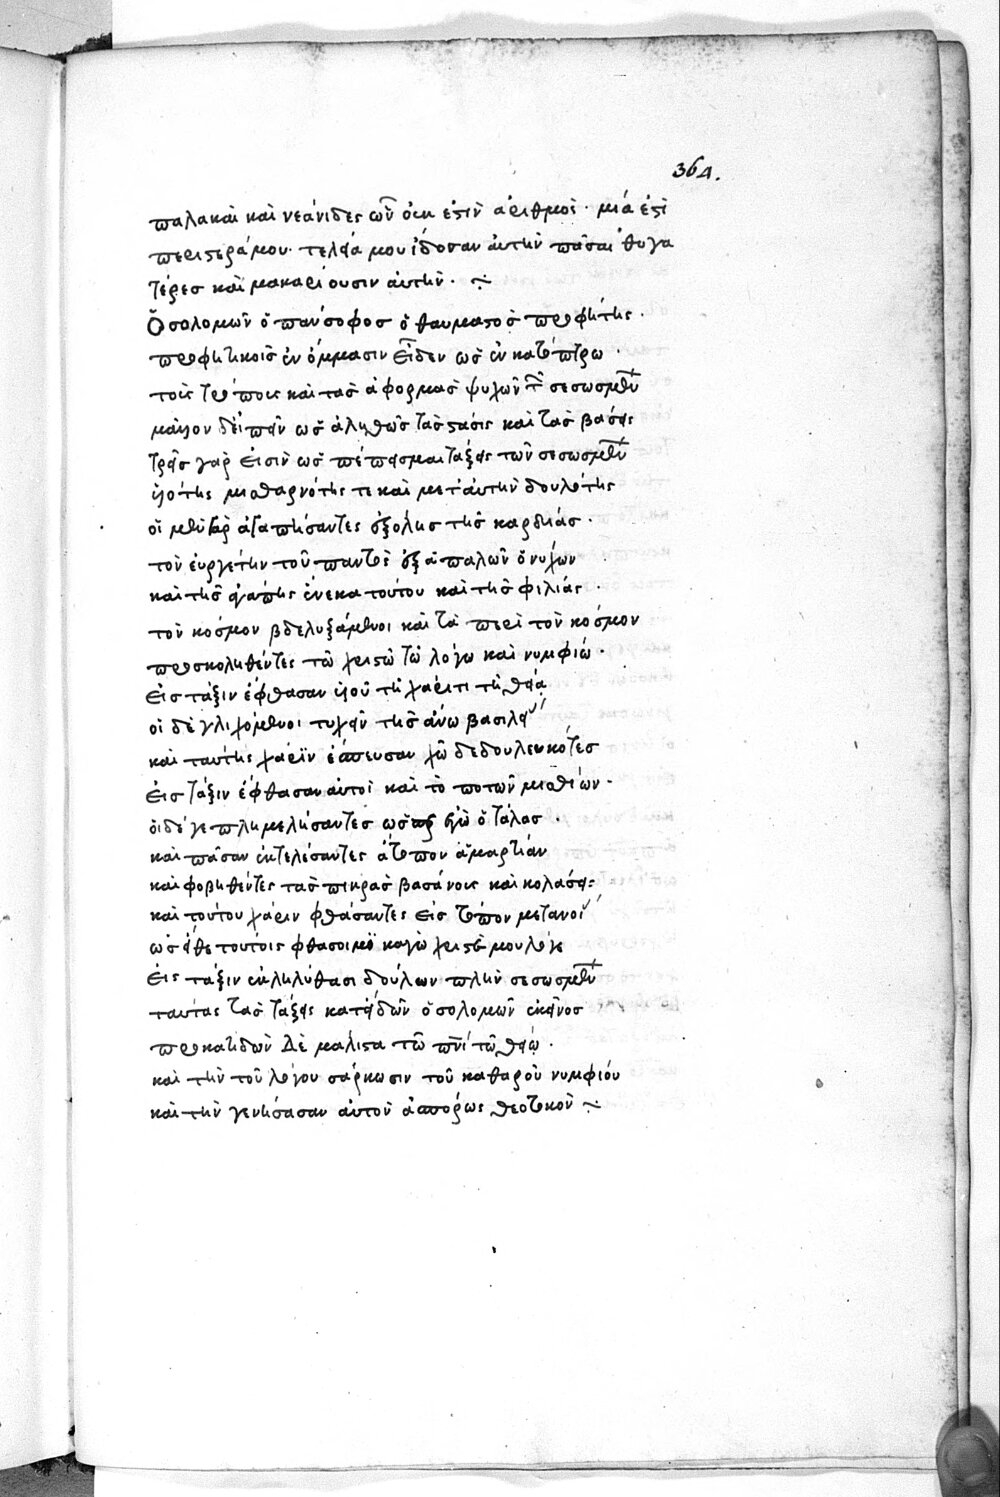 364.
παλακαὶ καὶ νεάνιδες ὧν οὐκ ἔστιν ἀριθμός· μία ἐστὶ
περιστερά μου· τελεία μου ἴδοσαν αὐτὴν πᾶσαι θυγα
τέρες καὶ μακαριοῦσιν αὐτήν·
Ὁ σολομῶν ὁ πάνσοφος ὁ θαυμαστὸς προφήτης·
προφητικοῖς ἐν ὄμμασιν εἶδεν ὡς ἐν κατόπτρω·
τοὺς τρόπους καὶ τὰς ἀφορμὰς ψυχῶν τῶν σεσωσμένων
μᾶλλον δ' εἰπεῖν ὡς ἀληθῶς τὰς στάσεις καὶ τὰς βάσεις
τρεῖς γὰρ εἰσὶν ὡς πέπεισμαι τάξεις τῶν σεσωσμένων
υἱότης μισθαρνότης τε καὶ μετ' αὐτὴν δουλότης
οἱ μὲν γὰρ ἀγαπήσαντες ἐξ ὅλης τῆς καρδίας·
τὸν εὐργέτην τοῦ παντὸς ἐξ ἁπαλῶν ὀνύχων
καὶ τῆς ἀγάπης ἕνεκα τούτου καὶ τῆς φιλίας·
τὸν κόσμον βδελυξάμενοι καὶ τὰ περὶ τὸν κόσμον
προσκοληθέντες τῶ χριστῶ τῶ λόγω καὶ νυμφίω·
εἰς τάξιν ἔφθασαν υἱοῦ τῆ χάριτι τῆ θεία
οἱ δὲ γλιχόμενοι τυχεῖν τῆς ἄνω βασιλείας
καὶ ταύτης χάριν ἔσπευσαν χῶ δεδουλευκότες
εἰς τάξιν ἔφθασαν αὐτοὶ καὶ τόπο τῶν μισθίων·
οἱ δέ γε πλημελήσαντες ὥσπερ ἐγὼ ὁ τάλας·
καὶ πᾶσαν ἐκτελέσαντες ἄτοπον ἁμαρτίαν
καὶ φοβηθέντες τὰς πικρὰς βασάνους καὶ κολάσεις
καὶ τούτου χάριν φθάσαντες εἰς τόπον μετανοίας
ὡς εἴθε τούτοις φθάσοιμι καγὼ χριστέ μου λόγε
εἰς τάξιν ἐληλύθασι δούλων πλὴν σεσωσμένων
ταύτας τὰς τάξεις κατειδὼν ὁ σολομῶν ἐκεῖνος
προκατιδὼν δὲ μάλιστα τῶ πνι τῶ θείω·
καὶ τὴν τοῦ λόγου σάρκωσιν τοῦ καθαροῦ νυμφίου
καὶ τὴν γενήσασαν αὐτὸν ἀσπόρως θεοτόκον